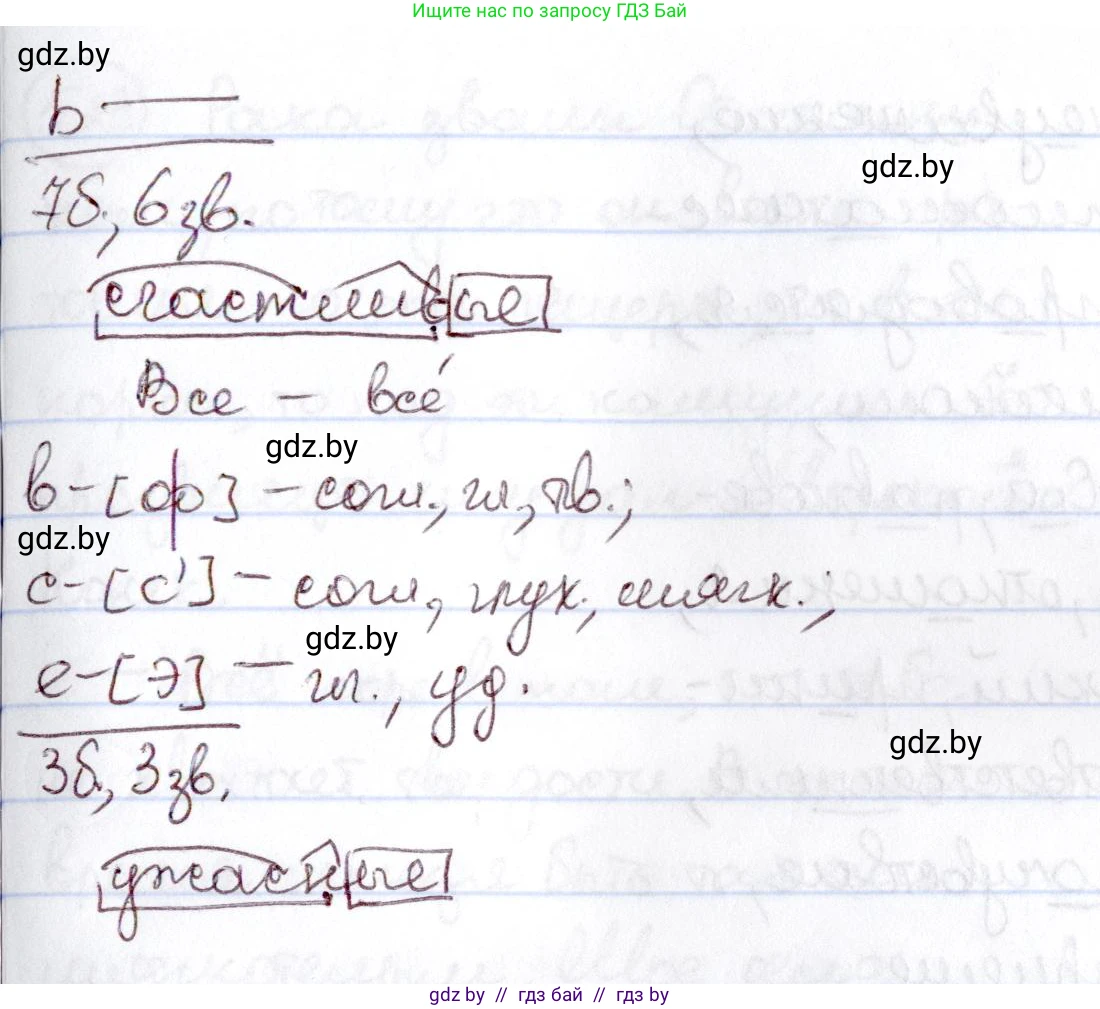 Ищите нас по запросу ГДЗ Бай
gdz.by
ь —
gdz.by
7б, 6 зв.
счастливые
Все – все́
gdz.by
в – [ф] – согл., гл., тв.;
gdz.by
с – [с'] – согл., глух., мягк.;
gdz.by
е – [э] – гл., уд.
gdz.by
3б, 3 зв.
ужасные
gdz.by // гдз бай // гдз by